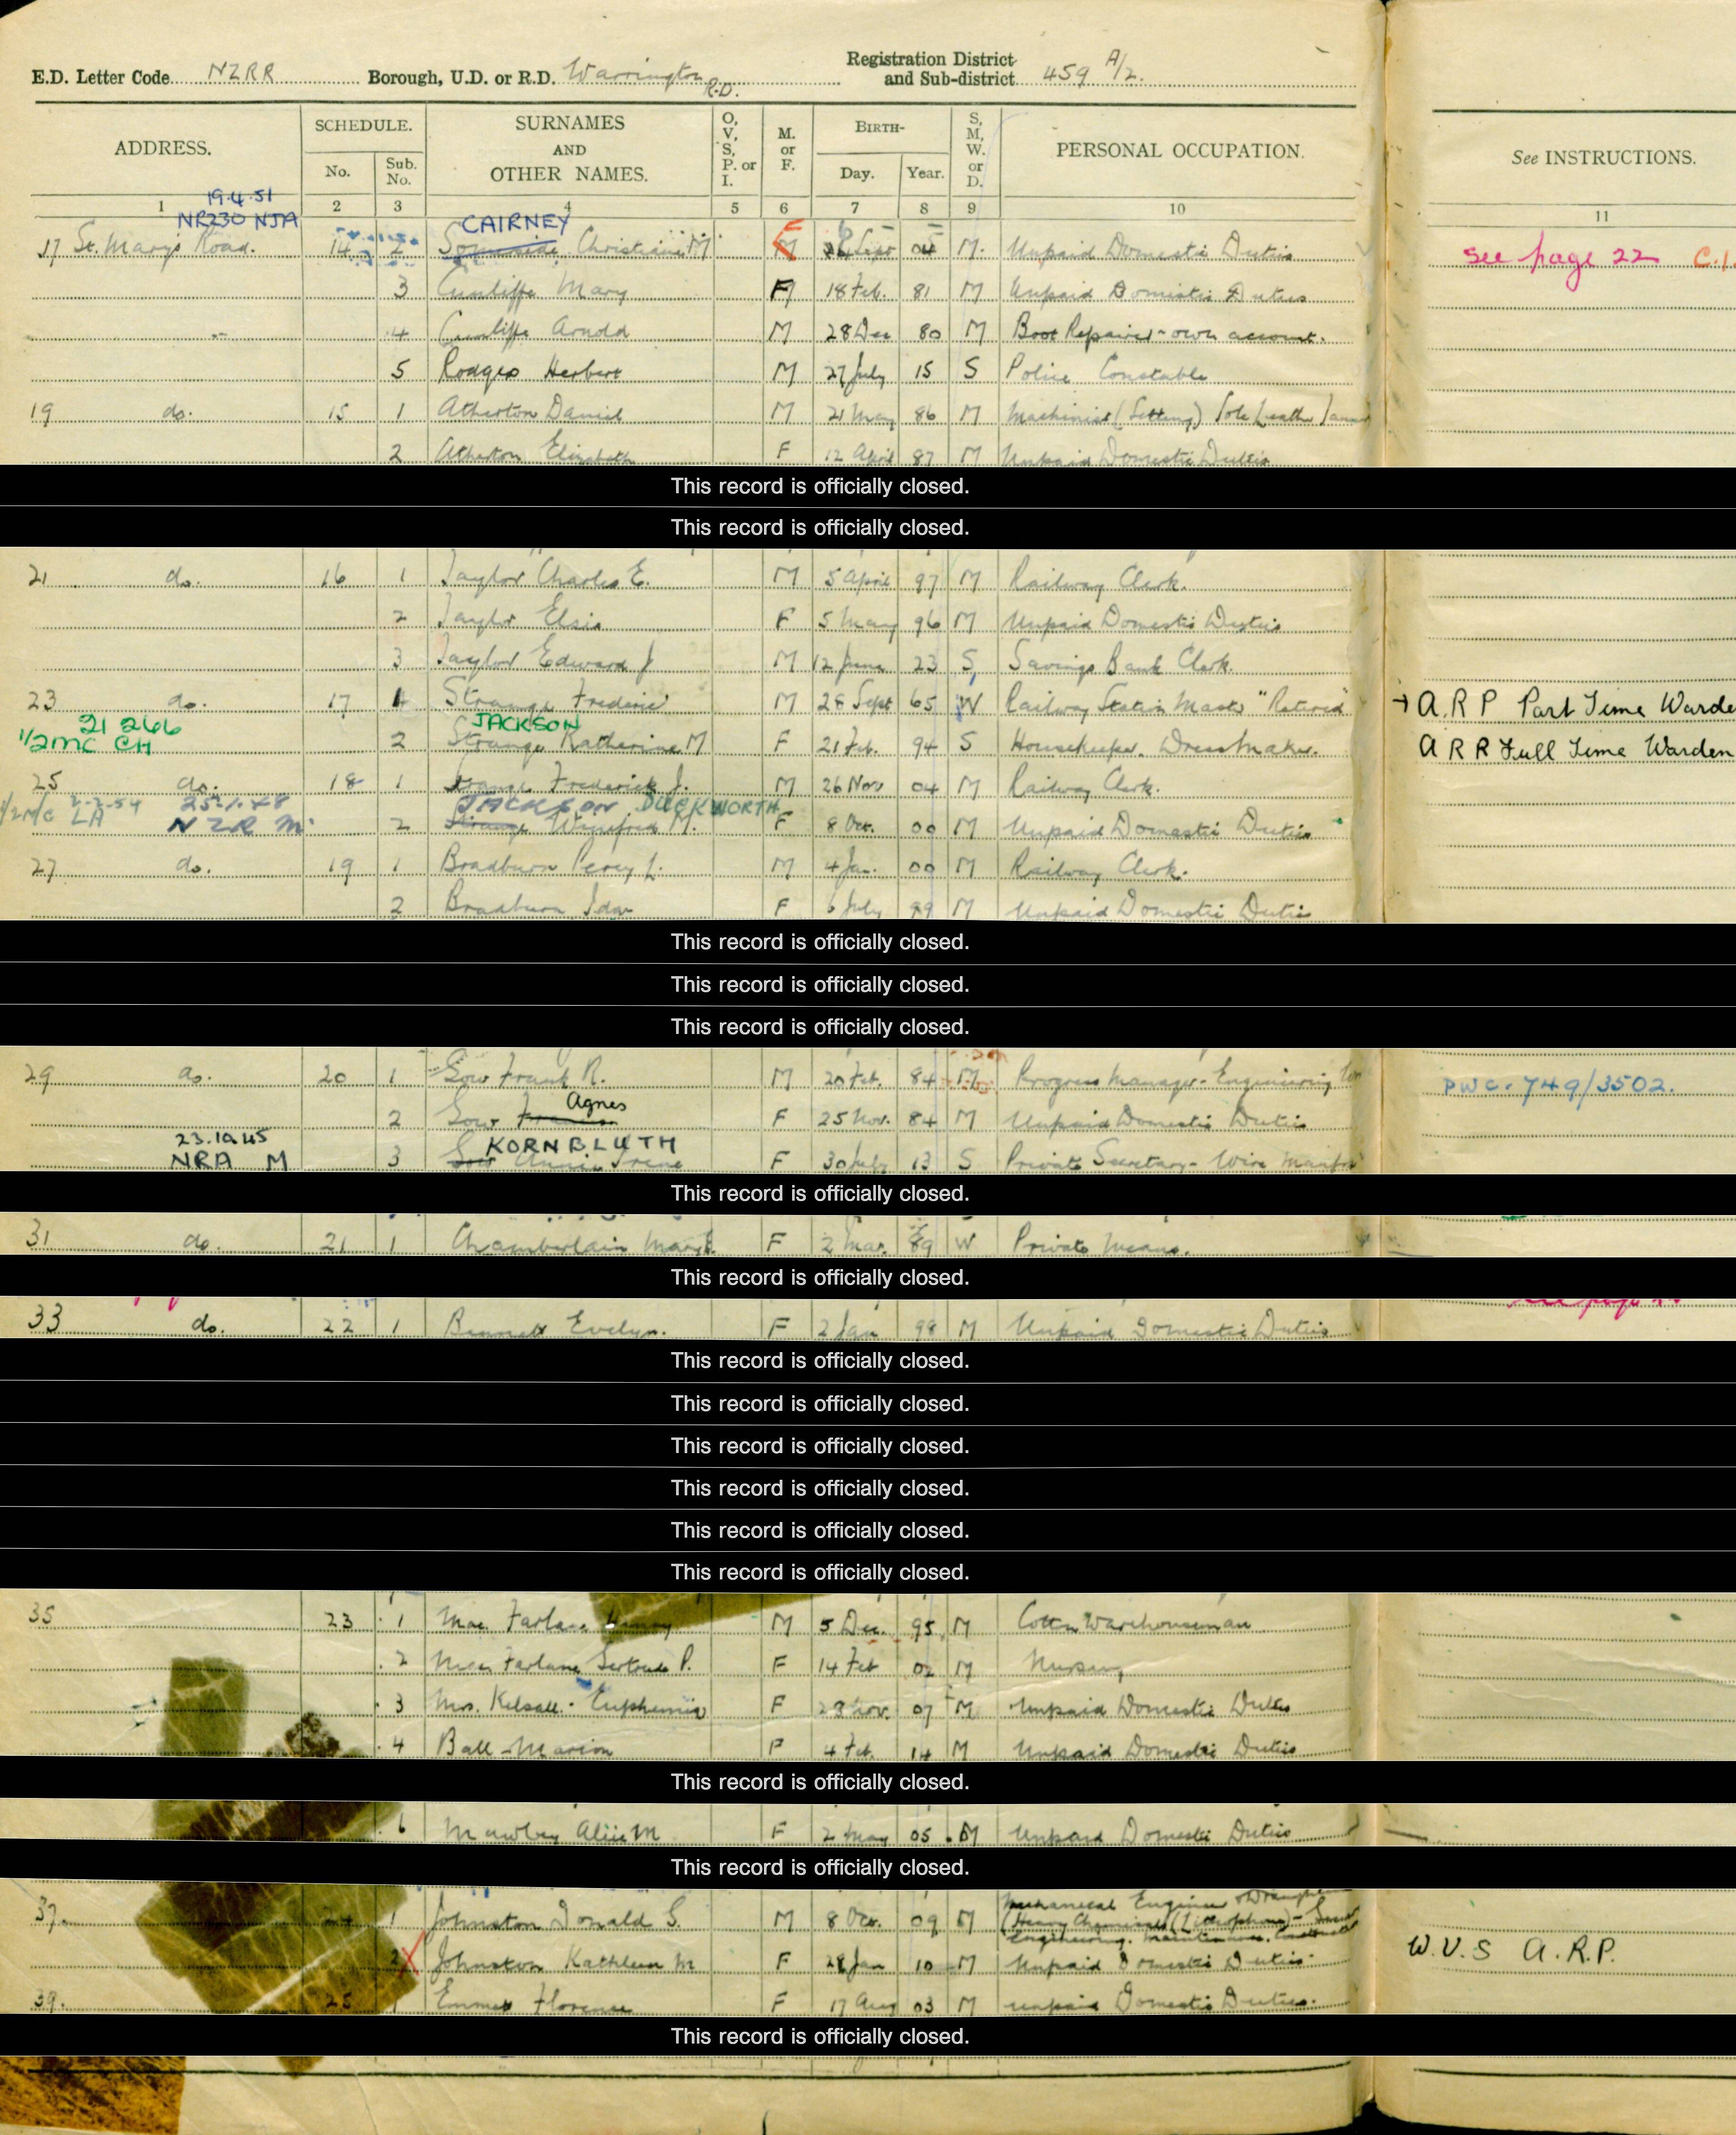 E.D. Letter Code NZRR Borough, U.D. or R.D. Warrington R.D. Registration District and Sub-district 459 A/2.
ADDRESS. SCHEDULE. No. Sub. No. SURNAMES AND OTHER NAMES. O, V, S, P. or I. M. or F. BIRTH- Day. Year. S, M, W. or D. PERSONAL OCCUPATION. See INSTRUCTIONS.
1 2 3 4 5 6 7 8 9 10 11
19.4.51
NR230 NJA CAIRNEY
17 St. Mary's Road. 14 2 Christiana M M Sept 04 M. Unpaid Domestic Duties See page 22 C.1.
3 Cunliffe Mary F 18 Feb. 81 M Unpaid Domestic Duties
4 Cunliffe Arnold M 28 Dec 80 M Boot Repairer - own account.
5 Rodgers Herbert M 27 July 15 S Police Constable
19 do. 15 1 Atherton Daniel M 21 May 86 M Machinist (Setting) Sole Leather
2 Atherton Elizabeth F 12 April 87 M Unpaid Domestic Duties
This record is officially closed.
This record is officially closed.
21 do. 16 1 Taylor Charles E. M 5 April 97 M Railway Clerk.
2 Taylor Elsie F 5 May 96 M Unpaid Domestic Duties
3 Taylor Edward J M 12 June 23 S Savings Bank Clerk.
23 do. 17 1 Strange Frederic M 28 Sept 65 W Railway Station Master "Retired" A.R.P Part Time Warde
21 266 JACKSON
1/2MC CH 2 Strange Katherine M F 21 Feb. 94 S Housekeeper. Dressmaker. A R P Full Time Warden
25 do. 18 1 Strange Frederick J. M 26 Nov 04 M Railway Clerk.
2-2-54 25.1.48 JACKSON DUCKWORTH
1/2MC LA NZR M 2 Strange Winifred M. F 8 Oct. 00 M Unpaid Domestic Duties
27 do. 19 1 Bradburn Percy L. M 4 Jan. 00 M Railway Clerk.
2 Bradburn Ida F 6 July 99 M Unpaid Domestic Duties
This record is officially closed.
This record is officially closed.
This record is officially closed.
29 do. 20 1 Frank R. M 20 Feb. 84 M Progress Manager - Engineering PWC. 749/3502.
Agnes
2 F 25 Nov. 84 M Unpaid Domestic Duties
23.10.45 KORNBLUTH
NRA M 3 Annie Irene F 30 July 13 S Private Secretary - Wire Manfr
This record is officially closed.
31 do. 21 1 Chamberlain Mary E. F 2 Mar. 89 W Private Means.
This record is officially closed.
33 do. 22 1 Bennett Evelyn. F 2 Jan 98 M Unpaid Domestic Duties
This record is officially closed.
This record is officially closed.
This record is officially closed.
This record is officially closed.
This record is officially closed.
This record is officially closed.
35 23 1 Mac Farlane Henry M 5 Dec. 95 M Cotton Warehouseman
2 Mac Farlane Gertrude P. F 14 Feb 02 M Nursing
3 Mrs. Kelsall. Euphemia F 28 Nov. 07 M Unpaid Domestic Duties
4 Ball Marion F 4 Feb. 14 M Unpaid Domestic Duties
This record is officially closed.
6 Mawbey Alice M F 2 May 05 M Unpaid Domestic Duties
This record is officially closed.
37. 1 Johnston Donald S. M 8 Oct. 09 M Mechanical Engineer (Heavy Chemicals (Lithophone) - Engineering. Maintenance.
2 Johnston Kathleen M F 28 Jan 10 M Unpaid Domestic Duties W.V.S A.R.P.
39. 25 1 Florence F 17 Aug 03 M Unpaid Domestic Duties.
This record is officially closed.